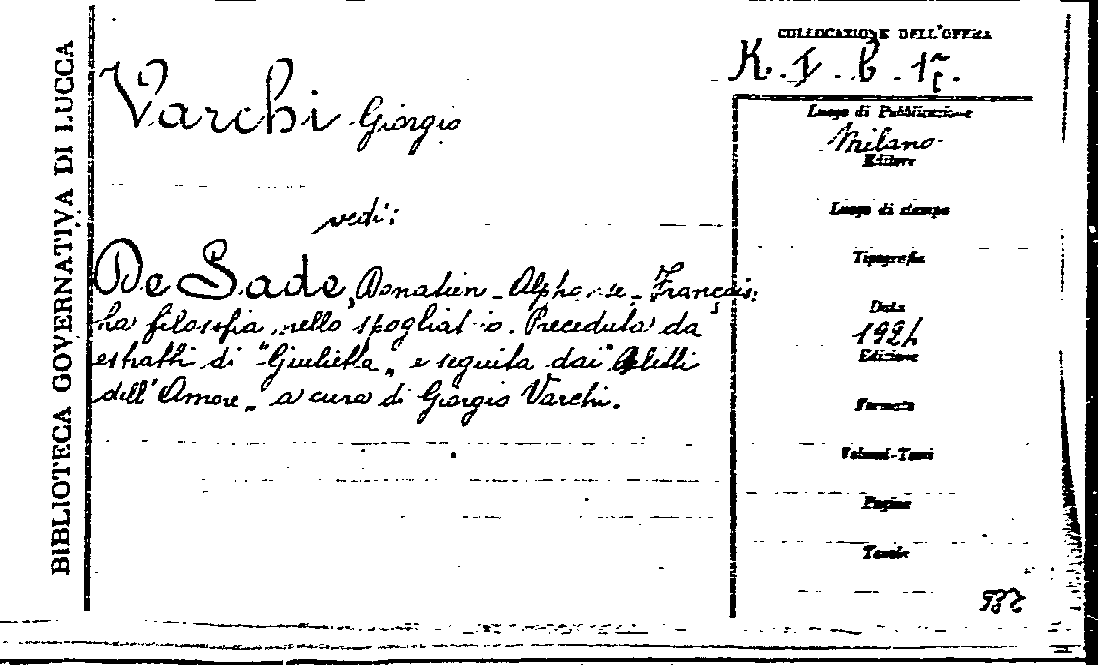 BIBLIOTECA GOVERNATIVA DI LUCCA
COLLOCAZIONE DELL'OPERA
K. I. 6.
Varchi Giorgio
Luogo di Pubblicazione
Milano
Editore
vedi:
Luogo di stampa
De Sade, Donatien-Alphonse-François:
Tipografia
La filosofia nello spogliatoio. Preceduta da
Data
192
estratti di "Giulietta", e seguita dai "Delitti
Edizione
dell'Amore" a cura di Giorgio Varchi.
Formato
Volumi-Tomi
Pagine
Tavole